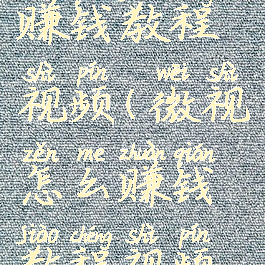 赚钱教程
shì pín wēi shì
视频(微视
zěn me zhuàn qián
怎么赚钱
jiāo chéng shì pín
教程视频